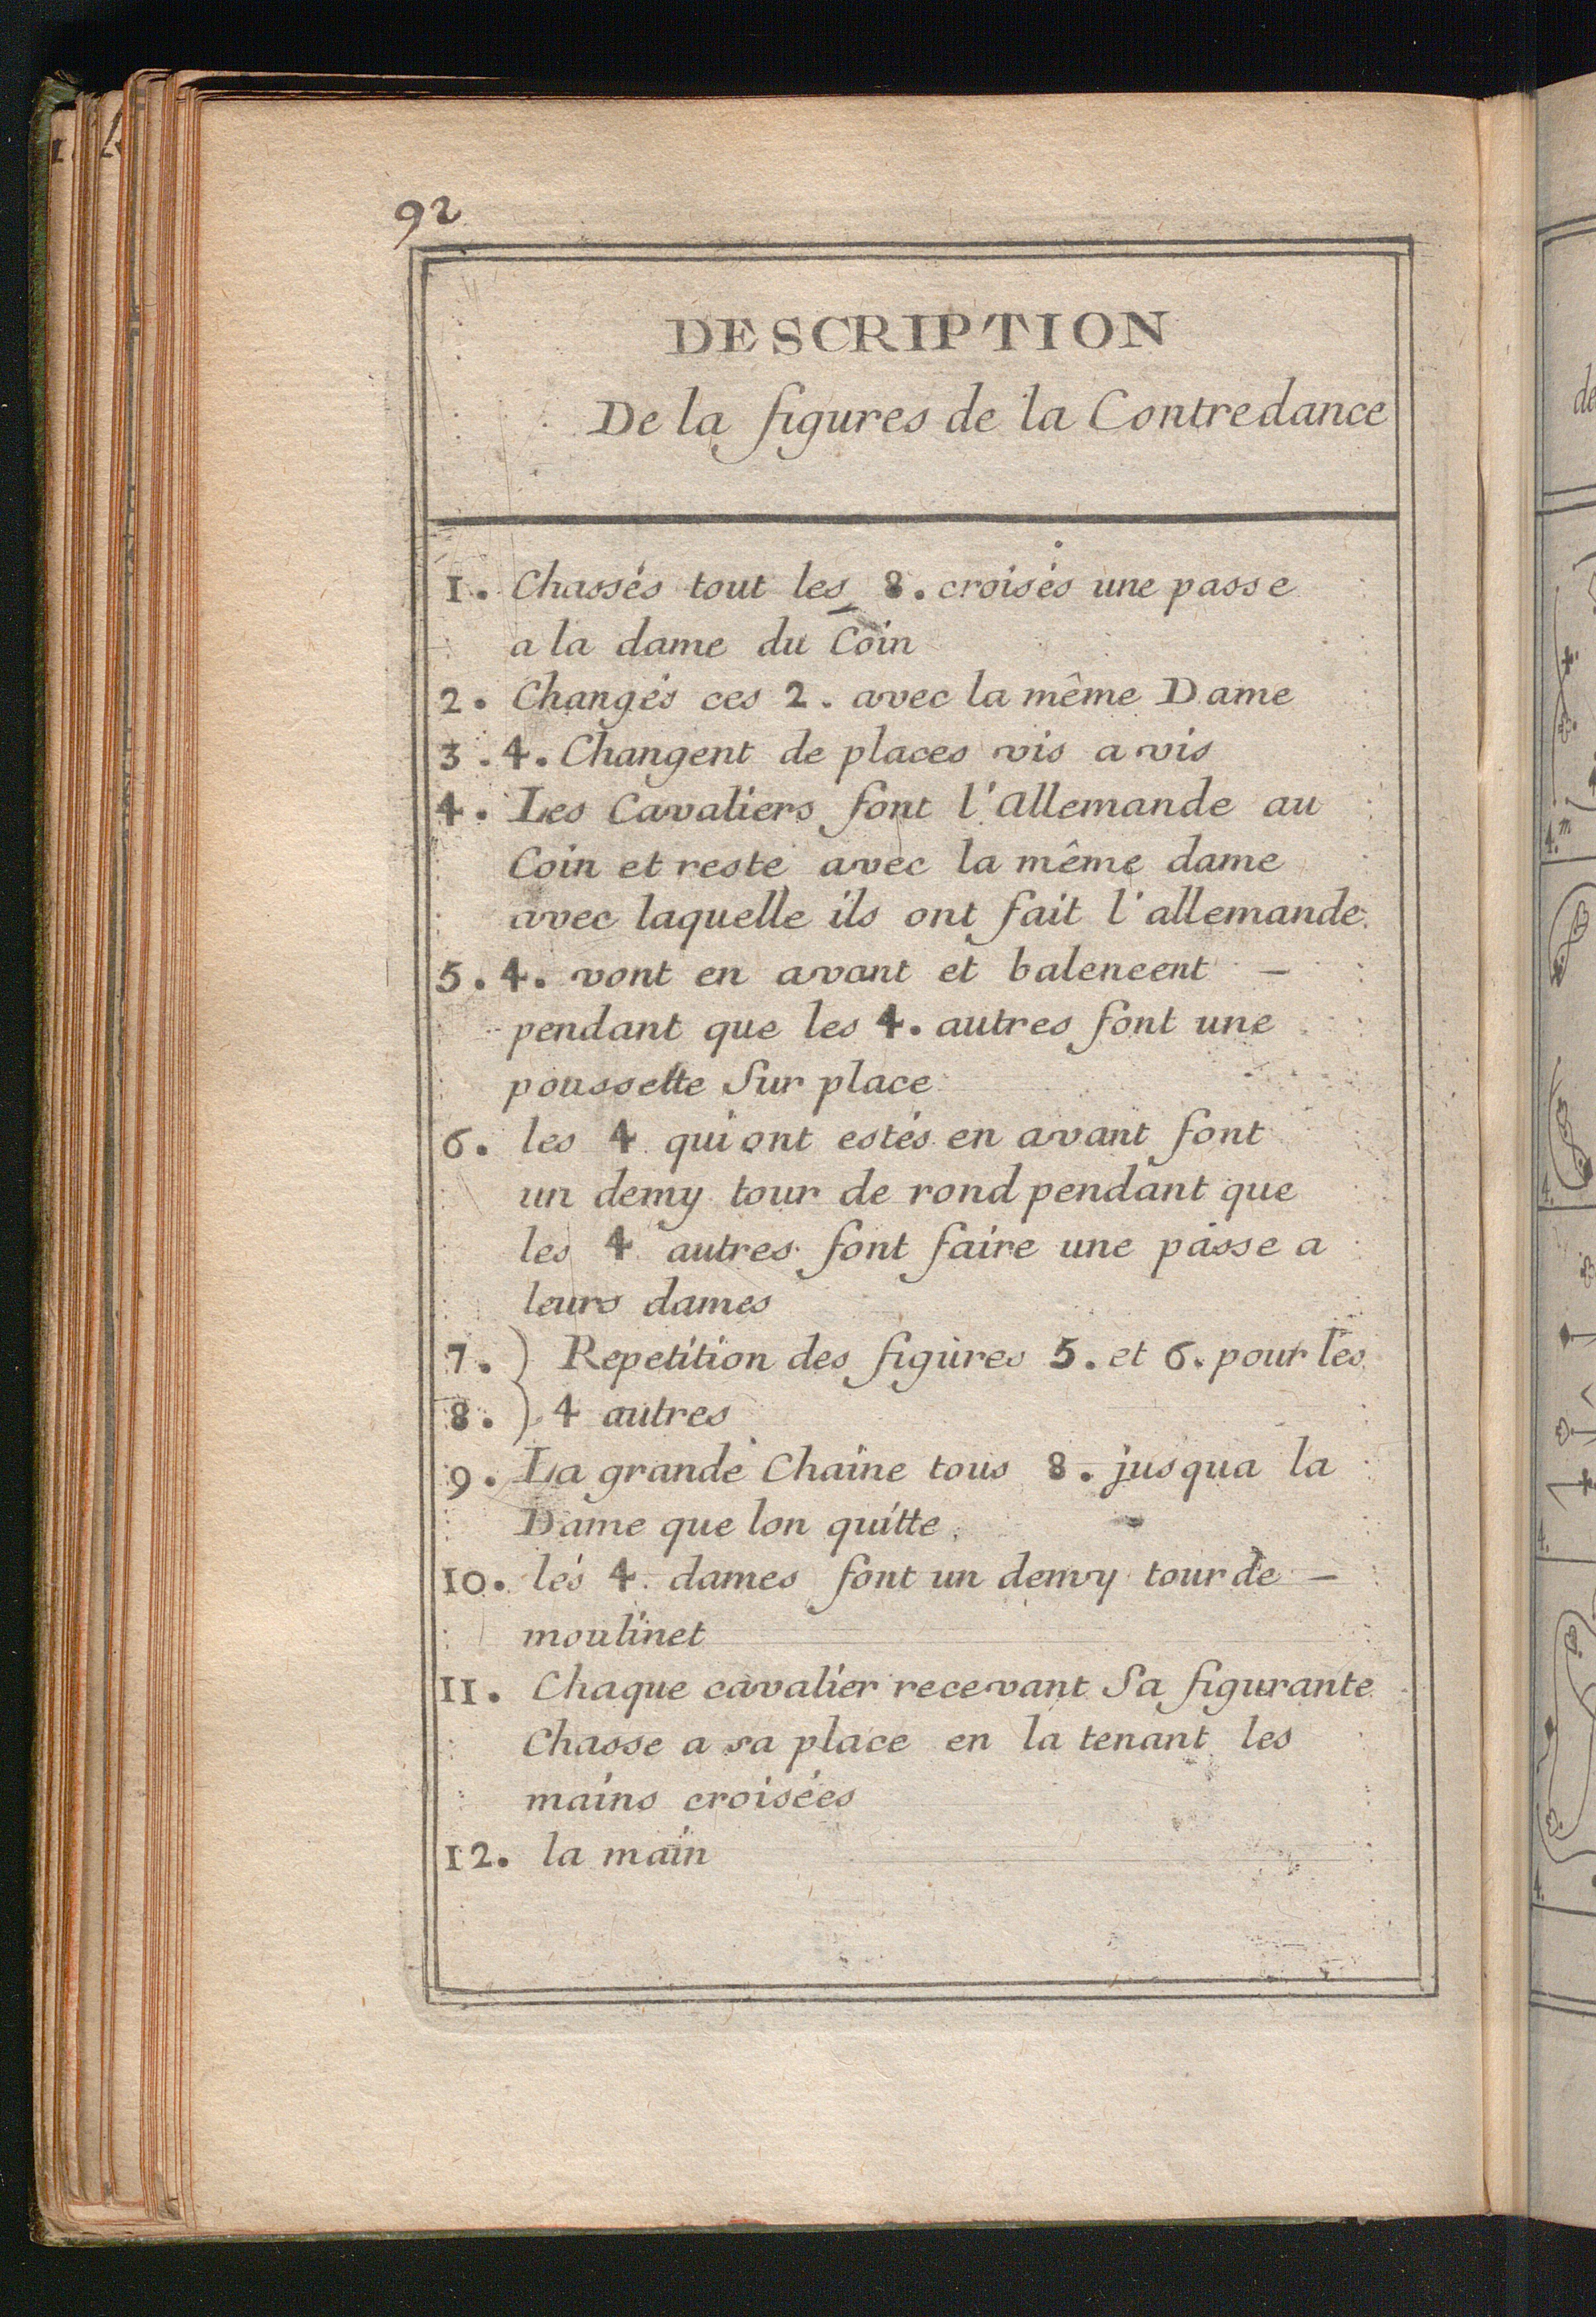 92
DESCRIPTION
De la figures de la Contredance
1. Chassés tout les 8. croisés une passe
a la dame du Coin
2. Changés ces 2. avec la même Dame
3. 4. Changent de places vis a vis
4. Les Cavaliers font l'allemande au
Coin et reste avec la même dame
avec laquelle ils ont fait l'allemande.
5. 4. vont en avant et balencent –
pendant que les 4. autres font une
poussette Sur place
6. les 4 qui ont estés en avant font
un demy tour de rond pendant que
les 4 autres font faire une passe a
leurs dames
7. ) Repetition des figures 5. et 6. pour les
8. ) 4 autres
9. La grande Chaine tous 8. jusqua la
Dame que lon quitte
10. lés 4 dames font un demy tour de –
moulinet
11. Chaque cavalier recevant Sa figurante
Chasse a sa place en la tenant les
mains croisées
12. la main